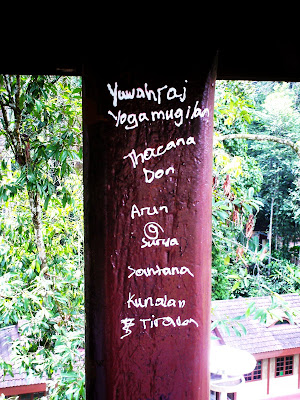 Yuwahraj
Yogamugilan
Thacana
Don
Arun
@
Surya
Santana
Kunalan
Tiradon